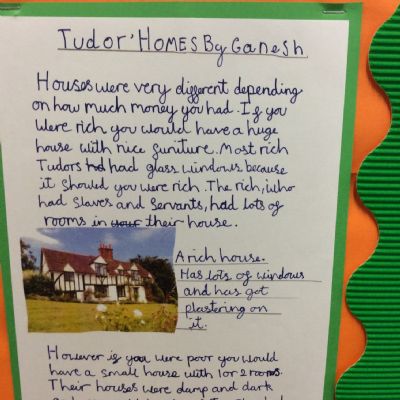 Tudor' HOMES By Ganesh
Houses were very different depending
on how much money you had. If you
were rich you would have a huge
house with nice funiture. Most rich
Tudors had had glass windows because
it should you were rich. The rich, who
had slaves and servants, had lots of
rooms in your their house.
A rich house.
Has lots of windows
and has got
plastering on
it.
However if you were poor you would
have a small house with 1 or 2 rooms.
Their houses were damp and dark